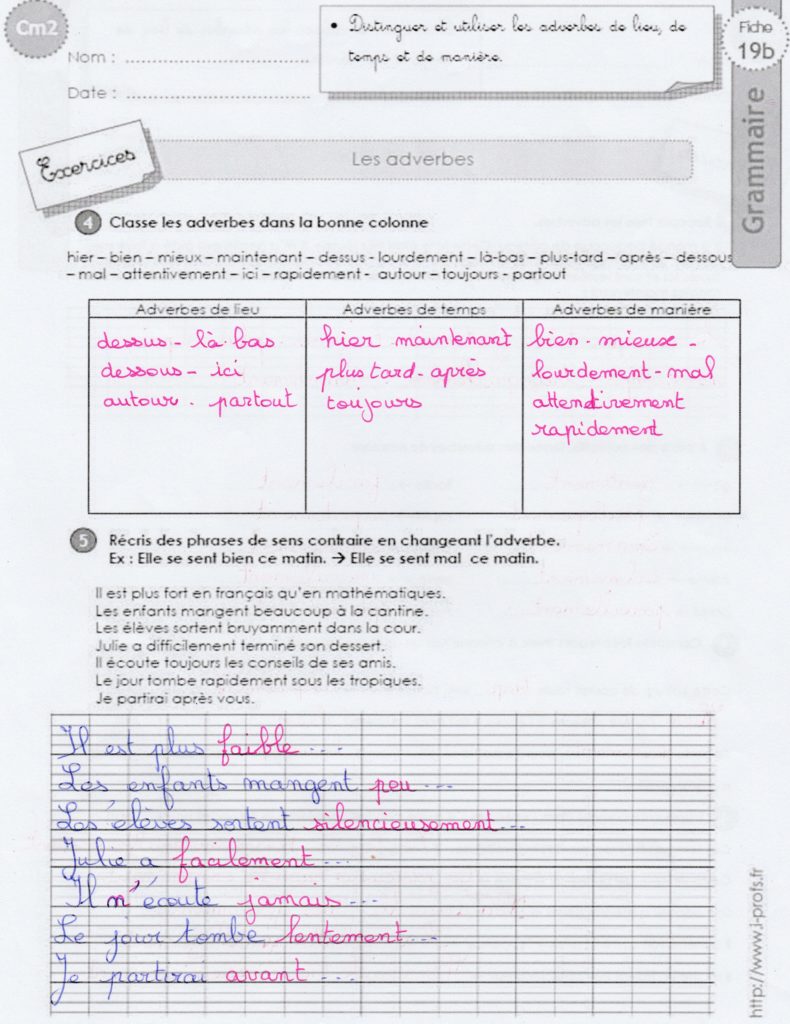 Cm2
• Distinguer et utiliser les adverbes de lieu, de
temps et de manière.
Fiche
19b
Nom : ......................................
Date : ......................................
Grammaire
Exercices
Les adverbes
4 Classe les adverbes dans la bonne colonne
hier – bien – mieux – maintenant – dessus - lourdement – là-bas – plus-tard – après – dessous
– mal – attentivement – ici – rapidement - autour – toujours - partout
Adverbes de lieu Adverbes de temps Adverbes de manière
dessus - là-bas
dessous - ici
autour - partout
hier maintenant
plus tard - après
toujours
bien - mieux -
lourdement - mal
attentivement
rapidement
5 Récris des phrases de sens contraire en changeant l'adverbe.
Ex : Elle se sent bien ce matin. → Elle se sent mal ce matin.
Il est plus fort en français qu'en mathématiques.
Les enfants mangent beaucoup à la cantine.
Les élèves sortent bruyamment dans la cour.
Julie a difficilement terminé son dessert.
Il écoute toujours les conseils de ses amis.
Le jour tombe rapidement sous les tropiques.
Je partirai après vous.
Il est plus faible ...
Les enfants mangent peu ...
Les élèves sortent silencieusement...
Julie a facilement ...
Il n'écoute jamais ...
Le jour tombe lentement ...
Je partirai avant ...
http://www.i-profs.fr